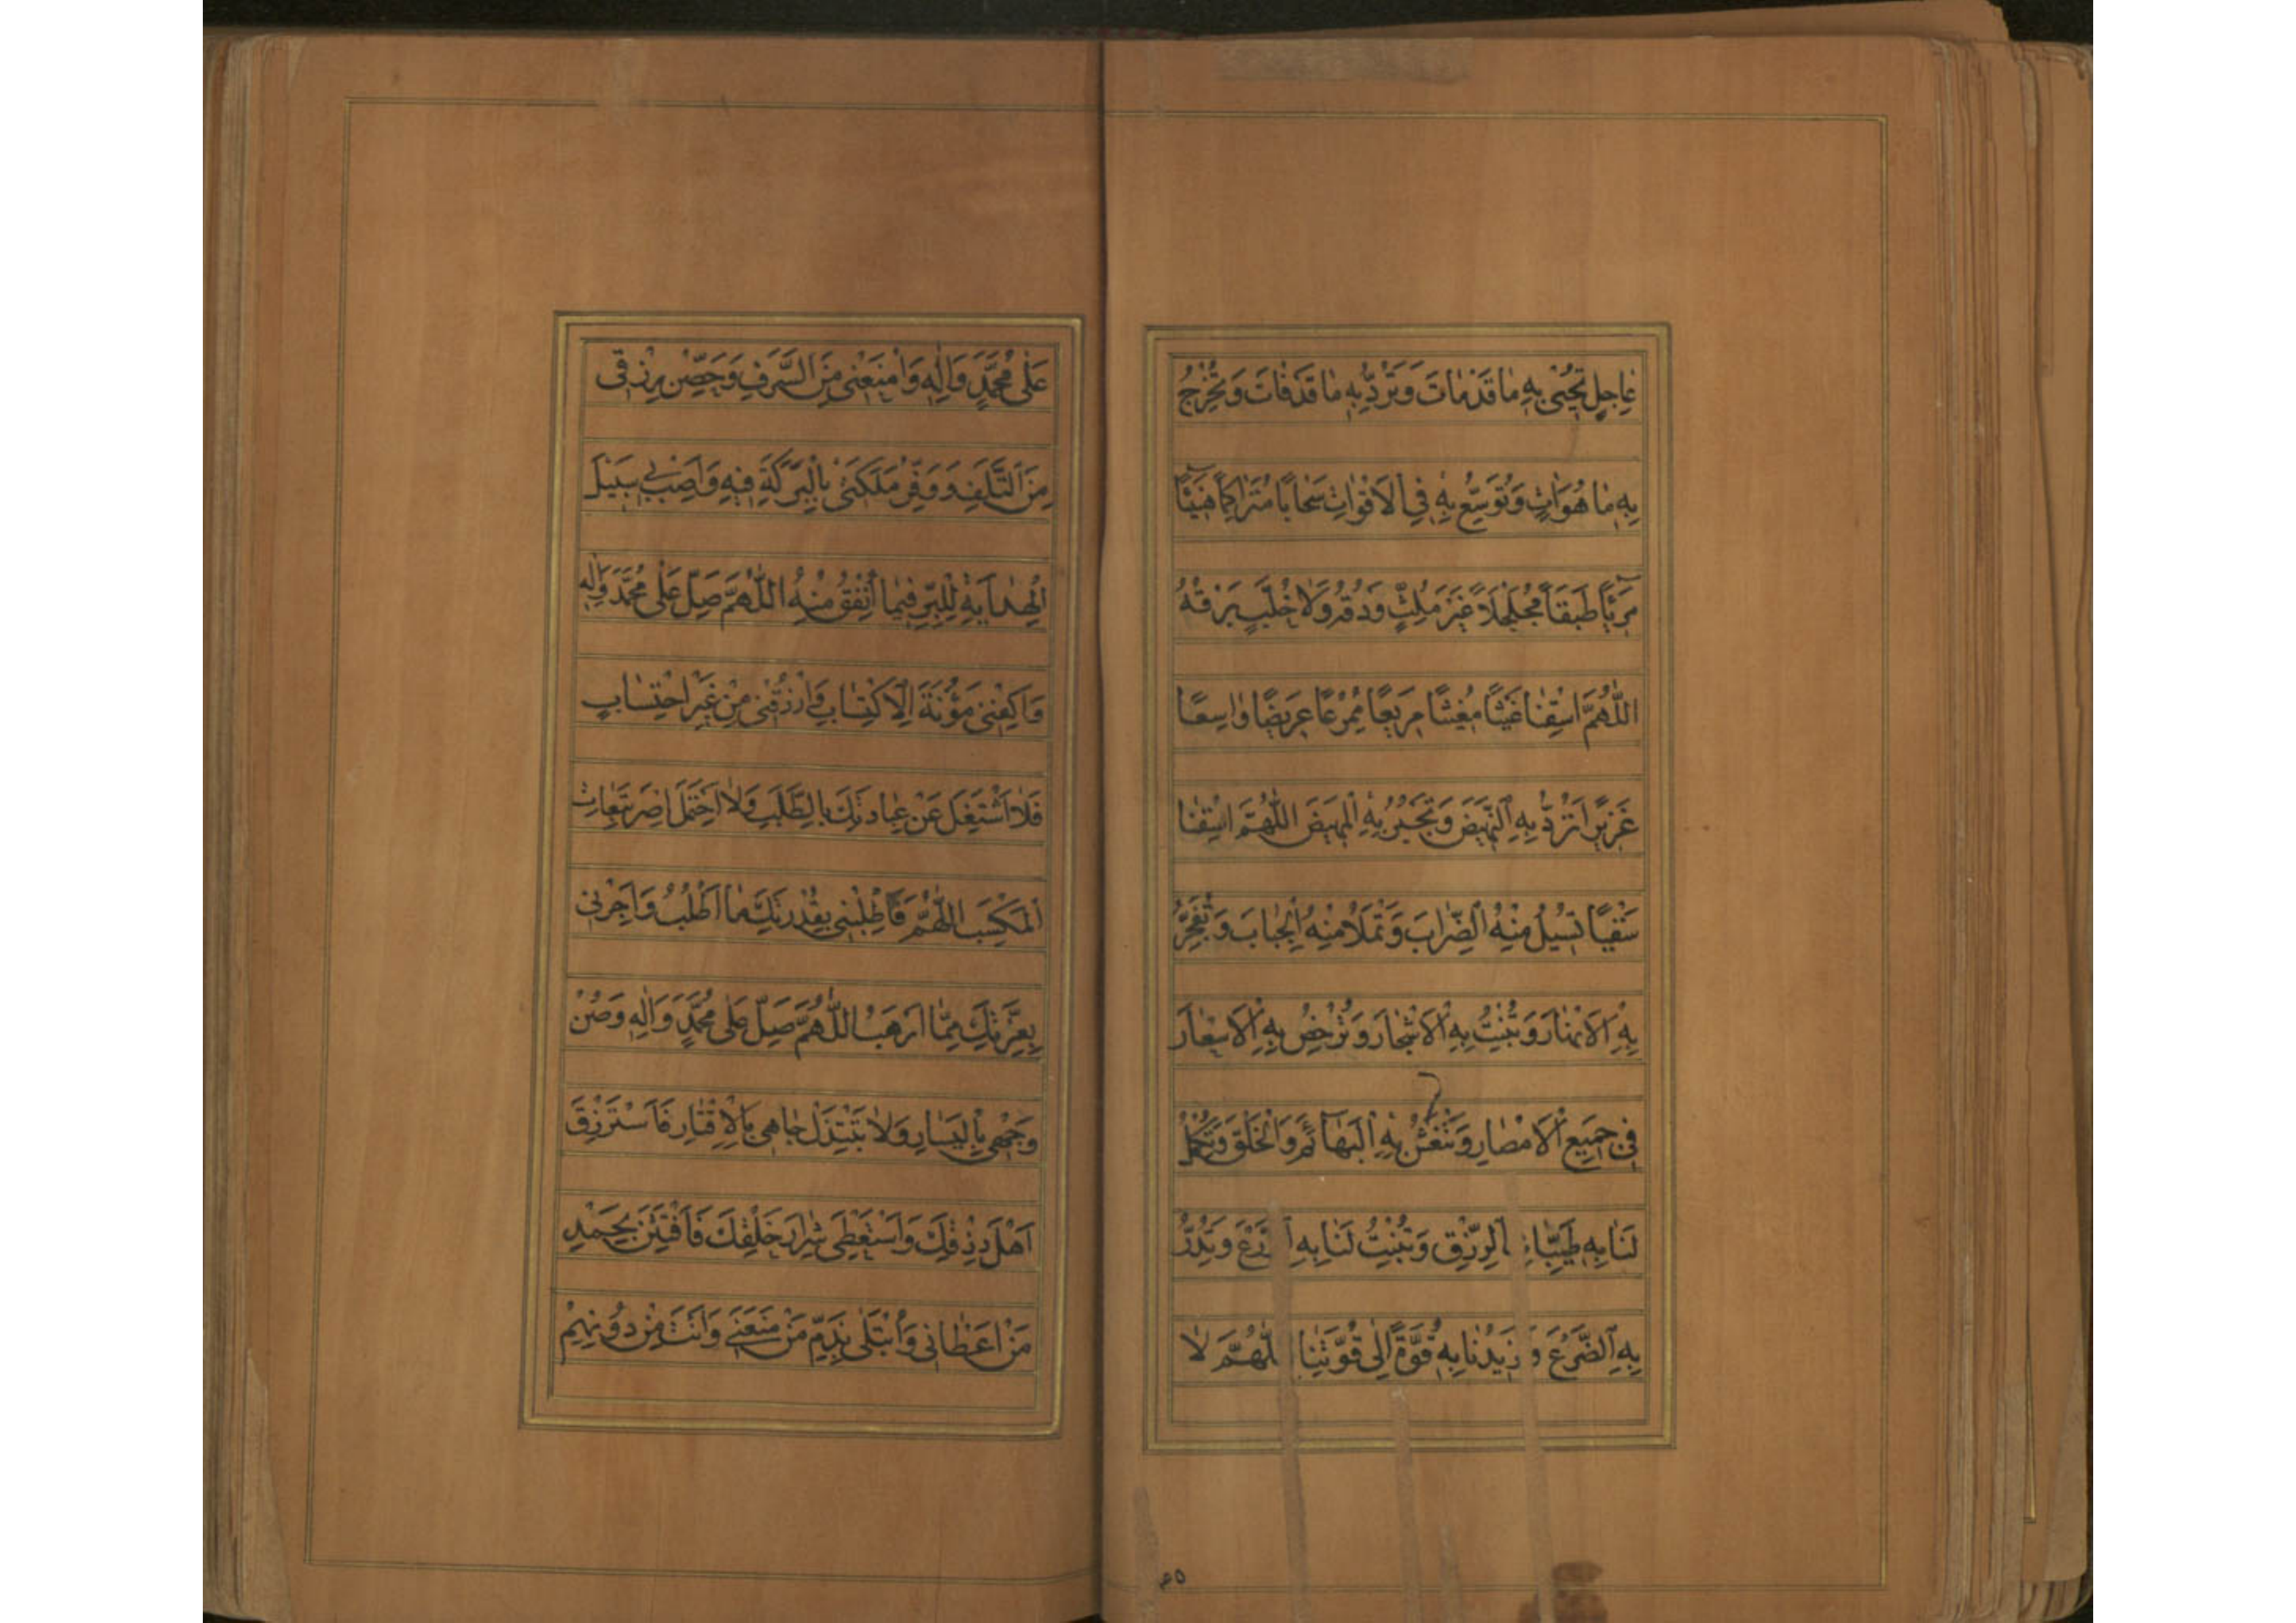 عَاجِلٍ تُحْيِي بِهِ مَا قَدْ مَاتَ وَتَرُدُّ بِهِ مَا قَدْ فَاتَ وَتُخْرِجُ
بِهِ مَا هُوَ اٰتٍ وَتُوَسِّعُ بِهِ فِي الْاَقْوَاتِ سَحَابًا مُتَرَاكِمًا هَنِيْئًا
مَرِيْئًا طَبَقًا مُجَلْجَلًا غَيْرَ مُلِثٍّ وَدْقُهُ وَلَا خُلَّبٍ بَرْقُهُ
اَللّٰهُمَّ اسْقِنَا غَيْثًا مُغِيْثًا مَرِيْعًا مُمْرِعًا عَرِيْضًا وَاسِعًا
غَزِيْرًا تَرُدُّ بِهِ النَّهِيْضَ وَتَجْبُرُ بِهِ الْمَهِيْضَ اَللّٰهُمَّ اسْقِنَا
سَقْيًا تُسِيْلُ مِنْهُ الظِّرَابَ وَتَمْلَأُ مِنْهُ الْجِبَابَ وَتُفَجِّرُ
بِهِ الْاَنْهَارَ وَتُنْبِتُ بِهِ الْاَشْجَارَ وَتُرْخِصُ بِهِ الْاَسْعَارَ
فِي جَمِيْعِ الْاَمْصَارِ وَتَنْعَشُ بِهِ الْبَهَائِمَ وَالْخَلْقَ وَتُكْمِلُ
لَنَا بِهِ طَيِّبَاتِ الرِّزْقِ وَتُنْبِتُ لَنَا بِهِ الزَّرْعَ وَتُدِرُّ
بِهِ الضَّرْعَ وَ تَزِيْدُنَا بِهِ قُوَّةً اِلٰى قُوَّتِنَا اللّٰهُمَّ لَا
٤٥
عَلٰى مُحَمَّدٍ وَاٰلِهِ وَامْنَعْنِي مِنَ السَّرَفِ وَحَصِّنْ رِزْقِي
مِنَ التَّلَفِ وَوَفِّرْ مَلَكَتِي بِالْبَرَكَةِ فِيْهِ وَاَصِبْ بِي سَبِيْلَ
الْهِدَايَةِ لِلْبِرِّ فِيْمَا اُنْفِقُ مِنْهُ اَللّٰهُمَّ صَلِّ عَلٰى مُحَمَّدٍ وَاٰلِهِ
وَاكْفِنِي مَؤُنَةَ الْاِكْتِسَابِ وَارْزُقْنِي مِنْ غَيْرِ احْتِسَابٍ
فَلَا اَشْتَغِلَ عَنْ عِبَادَتِكَ بِالطَّلَبِ وَلَا اَحْتَمِلَ اِصْرَ تَبِعَاتِ
الْمَكْسَبِ اَللّٰهُمَّ فَاَطْلِبْنِي بِقُدْرَتِكَ مَا اَطْلُبُ وَاَجِرْنِي
بِعِزَّتِكَ مِمَّا اَرْهَبُ اَللّٰهُمَّ صَلِّ عَلٰى مُحَمَّدٍ وَاٰلِهِ وَصُنْ
وَجْهِي بِالْيَسَارِ وَلَا تَبْتَذِلْ جَاهِي بِالْاِقْتَارِ فَاَسْتَرْزِقَ
اَهْلَ رِزْقِكَ وَاَسْتَعْطِيَ شِرَارَ خَلْقِكَ فَاَفْتَتِنَ بِحَمْدِ
مَنْ اَعْطَانِي وَاُبْتَلٰى بِذَمِّ مَنْ مَنَعَنِي وَاَنْتَ مِنْ دُوْنِهِمْ